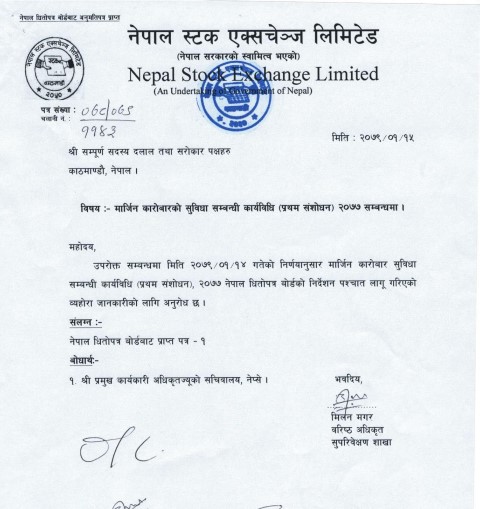 नेपाल धितोपत्र बोर्डबाट अनुमतिपत्र प्राप्त
नेपाल स्टक एक्सचेञ्ज लिमिटेड
(नेपाल सरकारको स्वामित्व भएको)
Nepal Stock Exchange Limited
(An Undertaking of Government of Nepal)
पत्र संख्या : ०७८/०७९
चलानी नं. : ११८३
मिति : २०७९/०१/१५
श्री सम्पूर्ण सदस्य दलाल तथा सरोकार पक्षहरु
काठमाण्डौ, नेपाल ।
विषय :- मार्जिन कारोबारको सुविधा सम्बन्धी कार्यविधि (प्रथम संशोधन) २०७७ सम्बन्धमा ।
महोदय,
उपरोक्त सम्बन्धमा मिति २०७९/०१/१४ गतेको निर्णयानुसार मार्जिन कारोबार सुविधा
सम्बन्धी कार्यविधि (प्रथम संशोधन), २०७७ नेपाल धितोपत्र बोर्डको निर्देशन पश्चात लागू गरिएको
व्यहोरा जानकारीको लागि अनुरोध छ ।
संलग्न :-
नेपाल धितोपत्र बोर्डबाट प्राप्त पत्र - १
बोधार्थ:-
१. श्री प्रमुख कार्यकारी अधिकृतज्यूको सचिवालय, नेप्से ।
भवदिय,
मिलन मगर
वरिष्ठ अधिकृत
सुपरिवेक्षण शाखा
O/C.